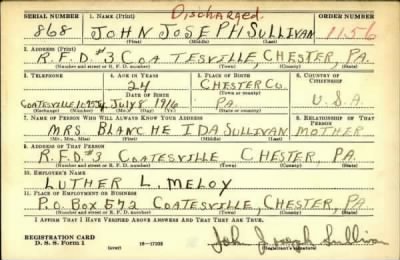 Discharged.
SERIAL NUMBER 1. NAME (Print) ORDER NUMBER
868 JOHN JOSEPH SULLIVAN 1156
(First) (Middle) (Last)
2. ADDRESS (Print)
R.F.D.#3 COATESVILLE, CHESTER, PA.
(Number and street or R. F. D. number) (Town) (County) (State)
3. TELEPHONE 4. AGE IN YEARS 5. PLACE OF BIRTH 6. COUNTRY OF CITIZENSHIP
24 CHESTER CO.
DATE OF BIRTH
COATESVILLE July 8 1916 PA. U.S.A.
(Exchange) (Number) (Mo.) (Day) (Yr.) (State or country)
7. NAME OF PERSON WHO WILL ALWAYS KNOW YOUR ADDRESS 8. RELATIONSHIP OF THAT PERSON
MRS BLANCHE IDA SULLIVAN MOTHER
(Mr., Mrs., Miss) (First) (Middle) (Last)
9. ADDRESS OF THAT PERSON
R.F.D.#3 COATESVILLE CHESTER PA.
(Number and street or R. F. D. number) (Town) (County) (State)
10. EMPLOYER'S NAME
LUTHER L. MELOY
11. PLACE OF EMPLOYMENT OR BUSINESS
P.O. BOX 572 COATESVILLE, CHESTER, PA
(Number and street or R. F. D. number) (Town) (County) (State)
I AFFIRM THAT I HAVE VERIFIED ABOVE ANSWERS AND THAT THEY ARE TRUE.
REGISTRATION CARD
D. S. S. Form 1 (over) 16-17105 John Joseph Sullivan
(Registrant's signature)